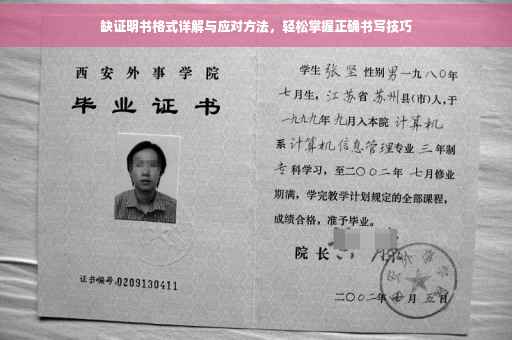 缺证明书格式详解与应对方法，轻松掌握正确书写技巧
西安外事学院
毕业证书
证书编号:0209130411
学生 张坚 性别 男 一九八〇年
七月生，江苏省 苏州县(市)人,于
一九九九年 九月入本院 计算机
系 计算机信息管理专业 三 年制
专科学习，至二〇〇二年 七月修业
期满，学完教学计划规定的全部课程，
成绩合格，准予毕业。
院 长
二〇〇二年 月 五日